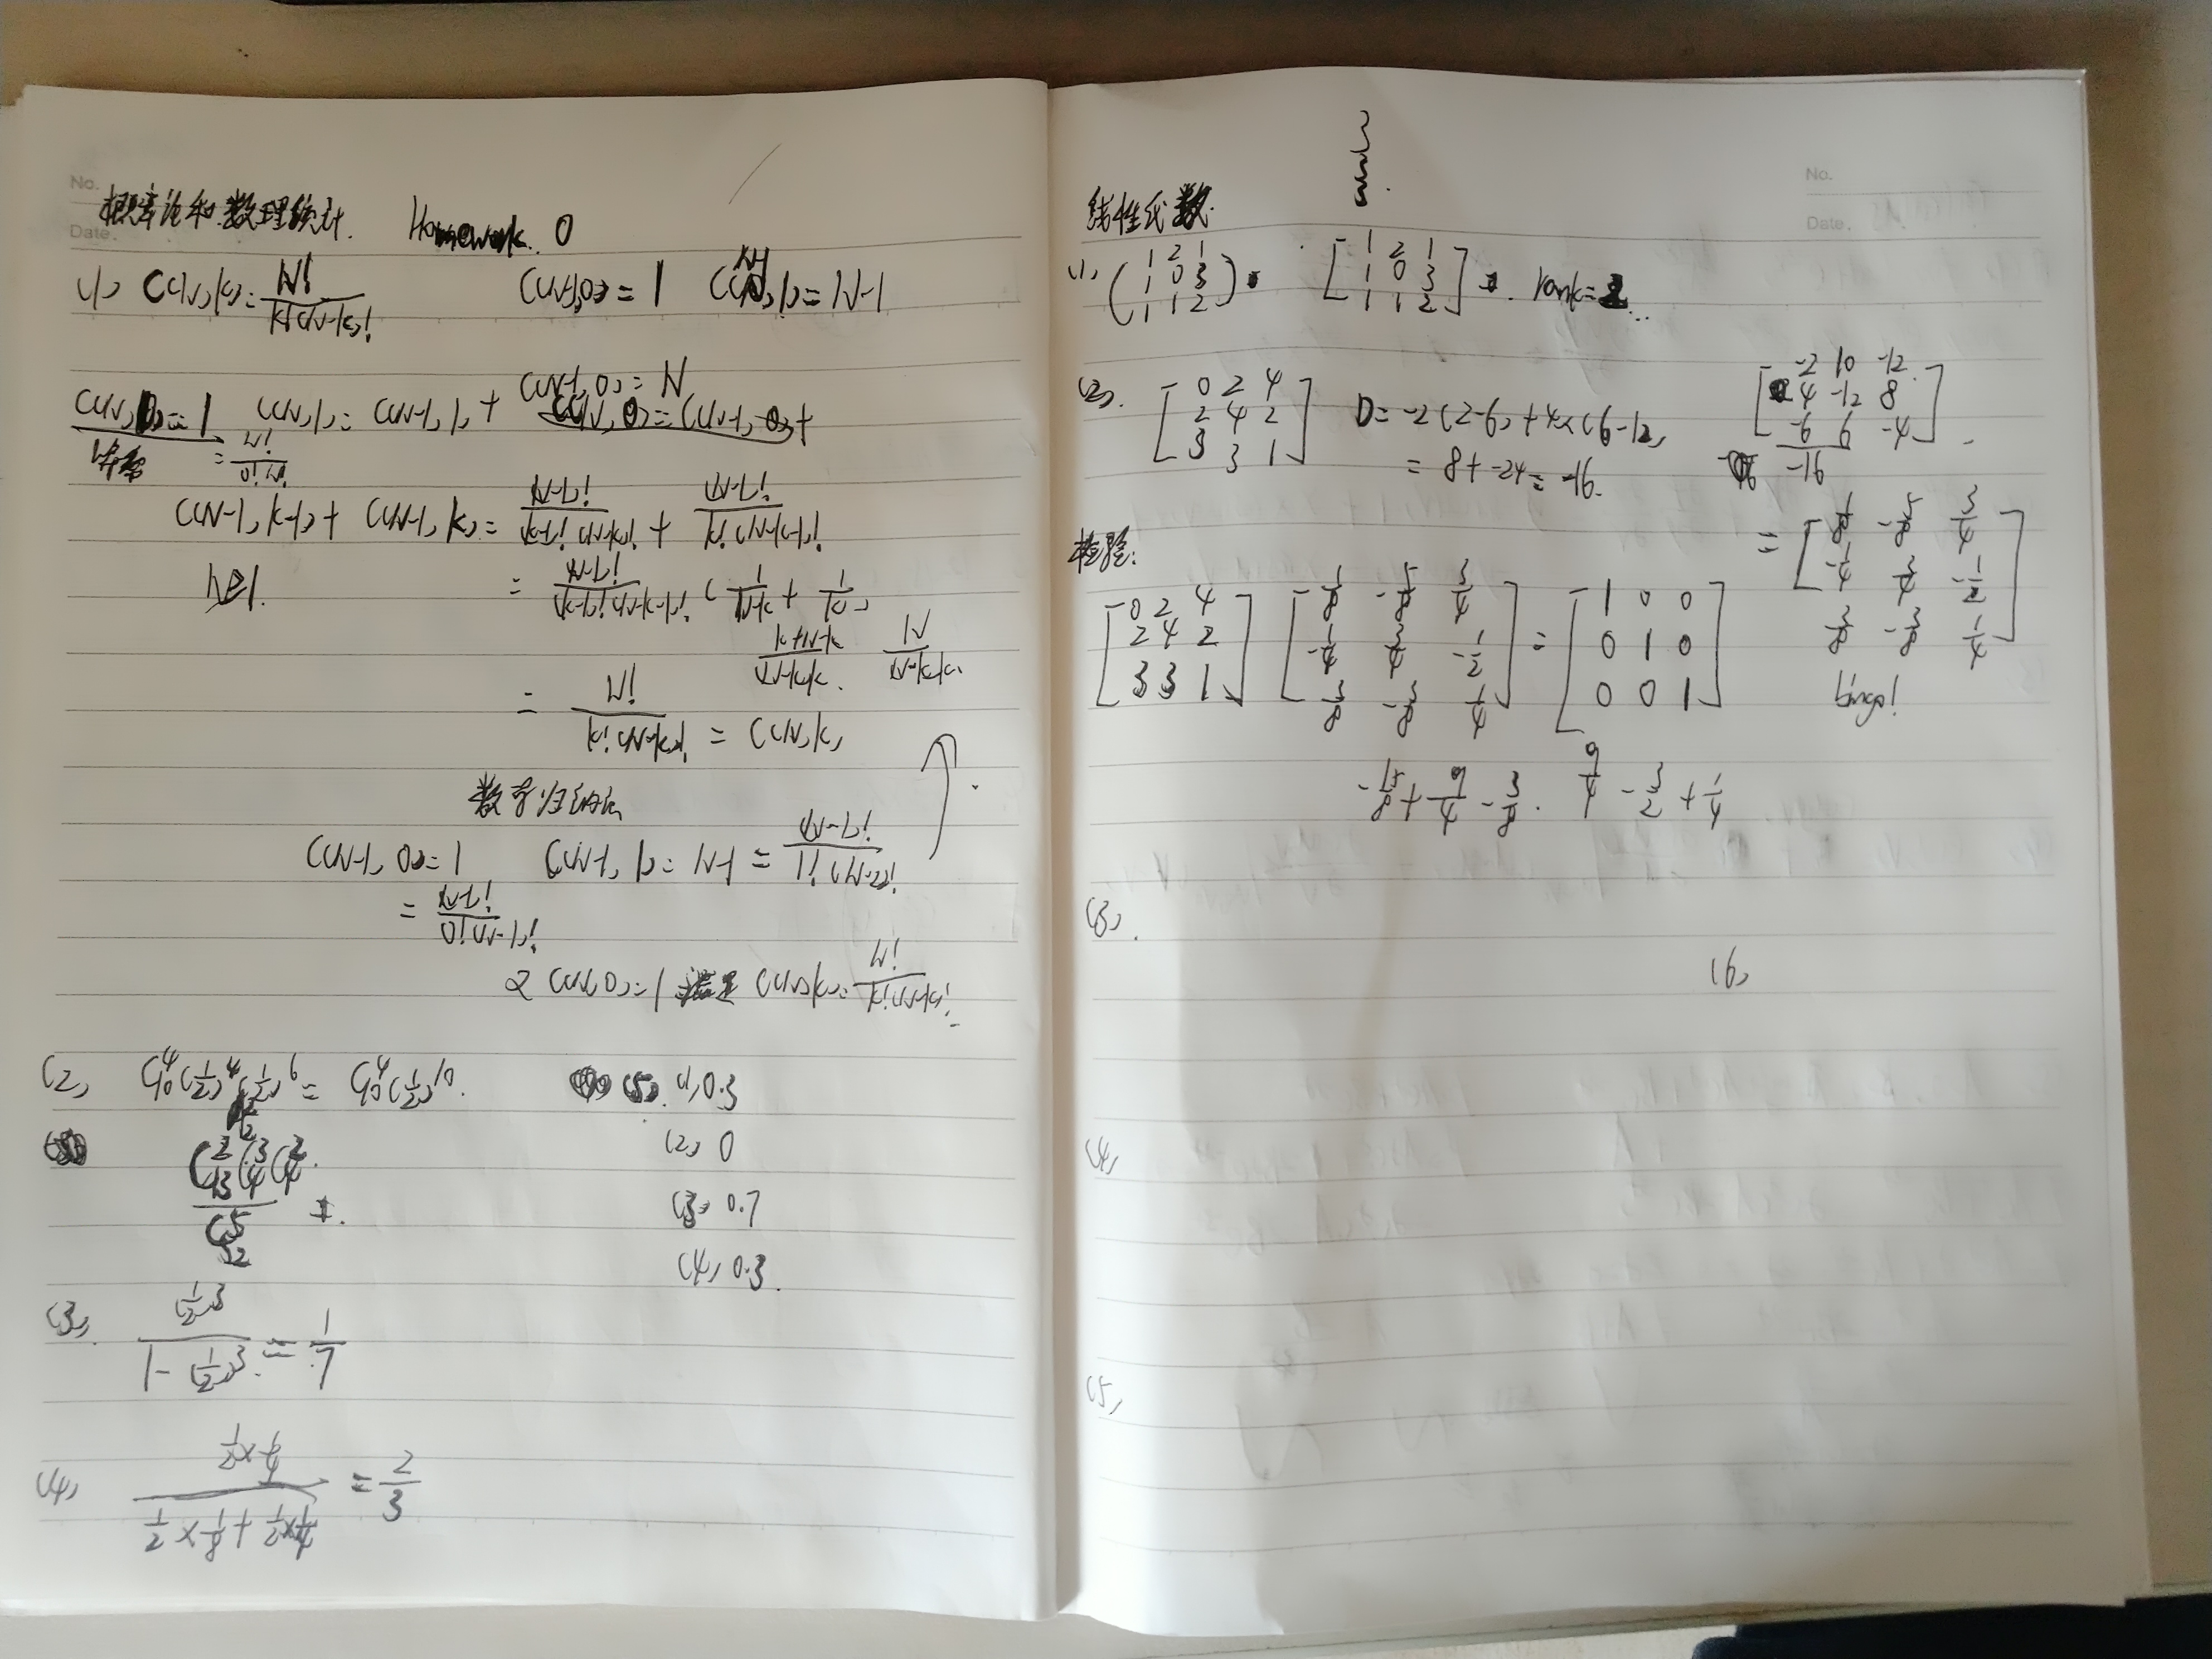 No.
Date.
概率论和数理统计. Homework. 0
(1) C(N,k)=N!/k!(N-k)! C(N-1,0)=1 C(N,1)=N-1
C(N-1,0)=N
C(N,0)=1 C(N,1)=C(N-1,1)+ C(N,0)=C(N-1,0)+
=N!/0!N!
C(N-1,k-1)+C(N-1,k)=(N-1)!/(k-1)!(N-k)!+(N-1)!/k!(N-k-1)!
N≥1. =(N-1)!/(k-1)!(N-k-1)!(1/N-k+1/k)
k+N-k/(N-k)k. N/(N-k)k.
=N!/k!(N-k)!=C(N,k)
数学归纳法
C(N-1,0)=1 C(N-1,1)=N-1=(N-1)!/1!(N-2)!
=(N-1)!/0!(N-1)!
又C(N,0)=1 满足 C(N,k)=N!/k!(N-k)!
(2) C₁₀⁴(1/2)⁴(1/2)⁶=C₁₀⁴(1/2)¹⁰. (5). (1) 0.3
(2) 0
(3) 0.7
(4) 0.3.
(3). (1/2)³/1-(1/2)³.=1/7
(4) 1/2×1/4/1/2×1/8+1/2×1/4=2/3
No.
Date.
线性代数.
(1) (1 2 1
1 0 3
1 1 2) [1 2 1
1 0 3
1 1 2] rank=2
(2). [0 2 4
2 4 2
3 3 1] D=-2(2-6)+4×(6-12)
=8+-24=-16.
[-2 10 -12
4 -12 8
-6 6 -4]
-16
=[1/8 -5/8 3/4
-1/4 3/4 -1/2
3/8 -3/8 1/4]
检验:
[0 2 4
2 4 2
3 3 1] [1/8 -5/8 3/4
-1/4 3/4 -1/2
3/8 -3/8 1/4] = [1 0 0
0 1 0
0 0 1] bingo!
-15/8+9/4-3/8. 9/4-3/2+1/4
(3).
(6)
(4)
(5)